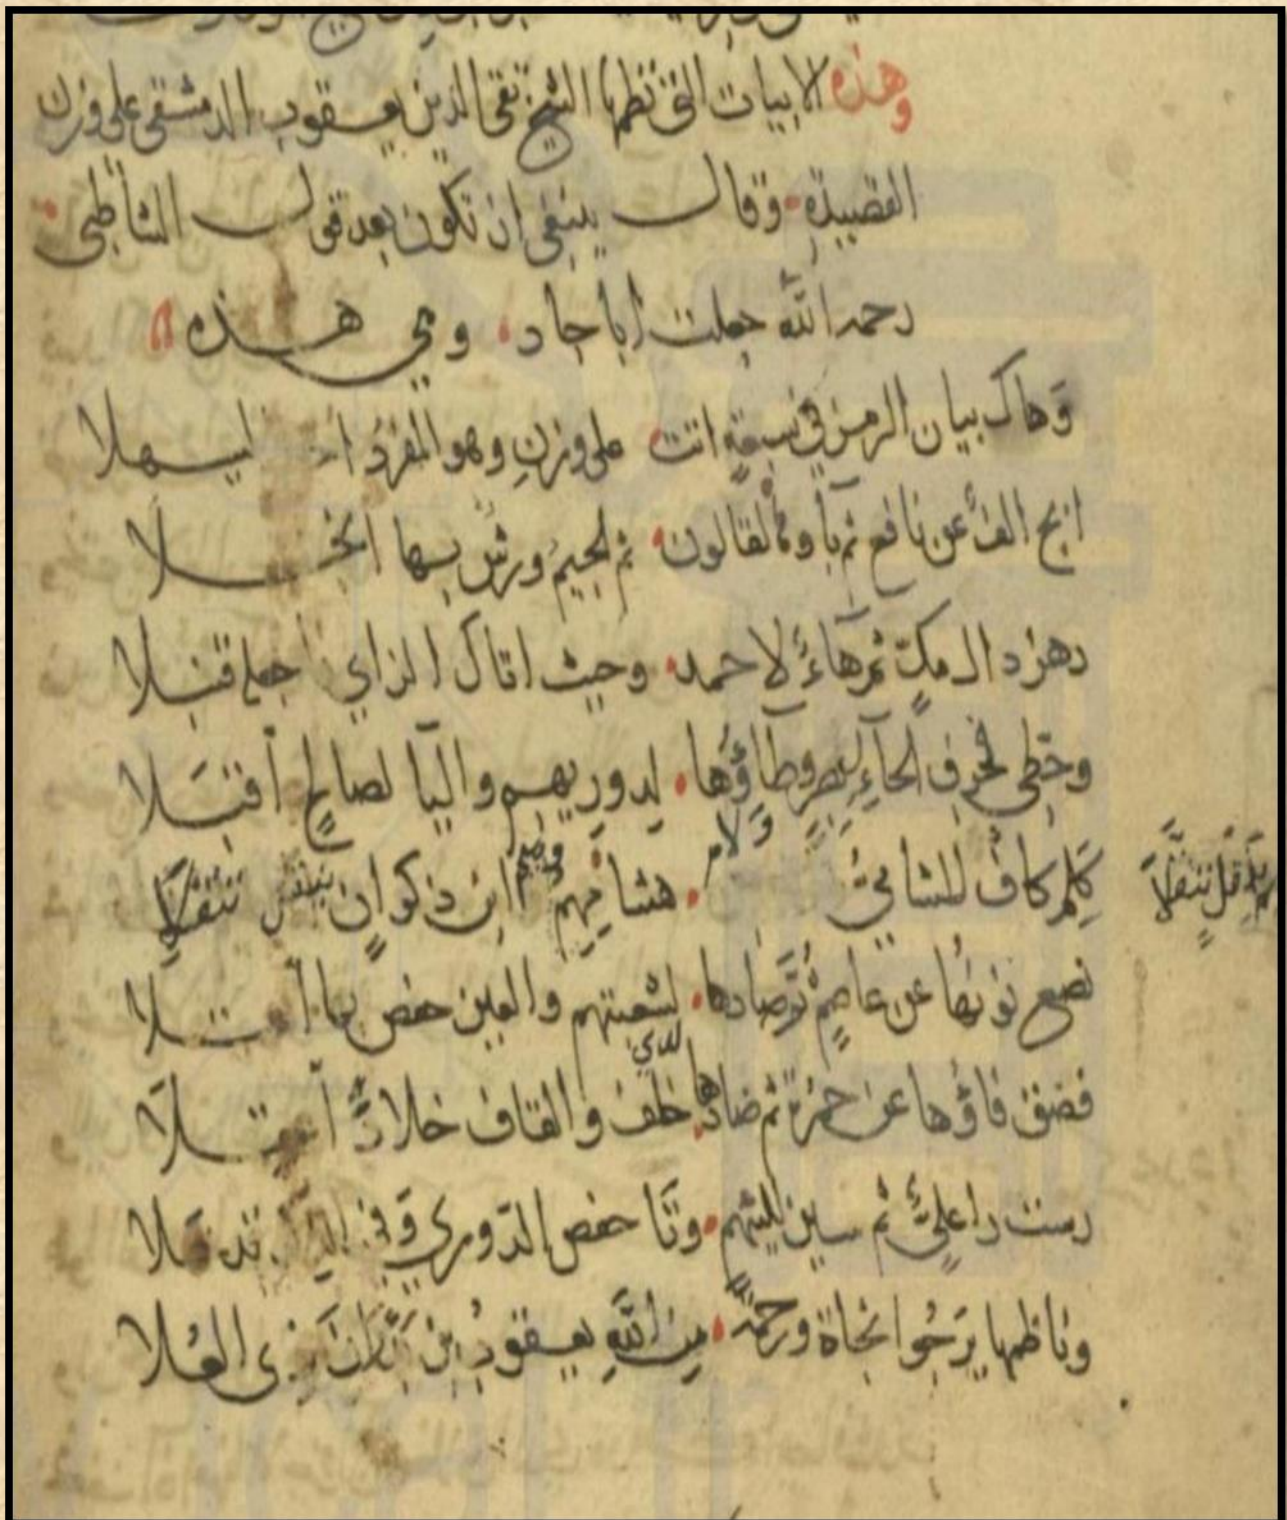 وهذه الابيات التى نظمها الشيخ تقى الدين يعقوب الدمشقى على وزن
القصيدة وقال ينبغى ان تكون بعد قول الشاطبى
رحمه الله جعلت اباجاد وهي هذه
وَهاك بيان الرمز في سبعةٍ اتت على وزنٍ وهو المفردُ ليسهلا
ابج الفٌ عن نافع ثم باؤها لقالون ثم الجيمُ ورشٌ بها انجلا
دهز دال مكىٍّ ثم هاءٌ لاحمد وحيث اتاك الزاي اجعله قنبلا
وحطى فحرف الحآءِ لبصرٍ وطاؤُها لدوريهم واليا لصالحٍ اقبَلا
كَلِم كافٌ للشامىُّ وَلام هشامُهم وميم ابن ذكوانٍ تنقلا
ميم بلا قل تنقَّلا
نصع نونها عن عاصمٍ ثم صادها لشعبتهم والعين حفص بها اعتلا
فضق فاؤها عن حمزة ثم ضادها لدي خلف والقاف خلادٌ
رست را علىٍّ ثم سين لليثهم وتَا حفص الدّوري وَفي
وناظمها يَرجُوا نجاة ورحمةً مِن اللهِ يعقوبُ بن بَدرَانَ ذى العُلا